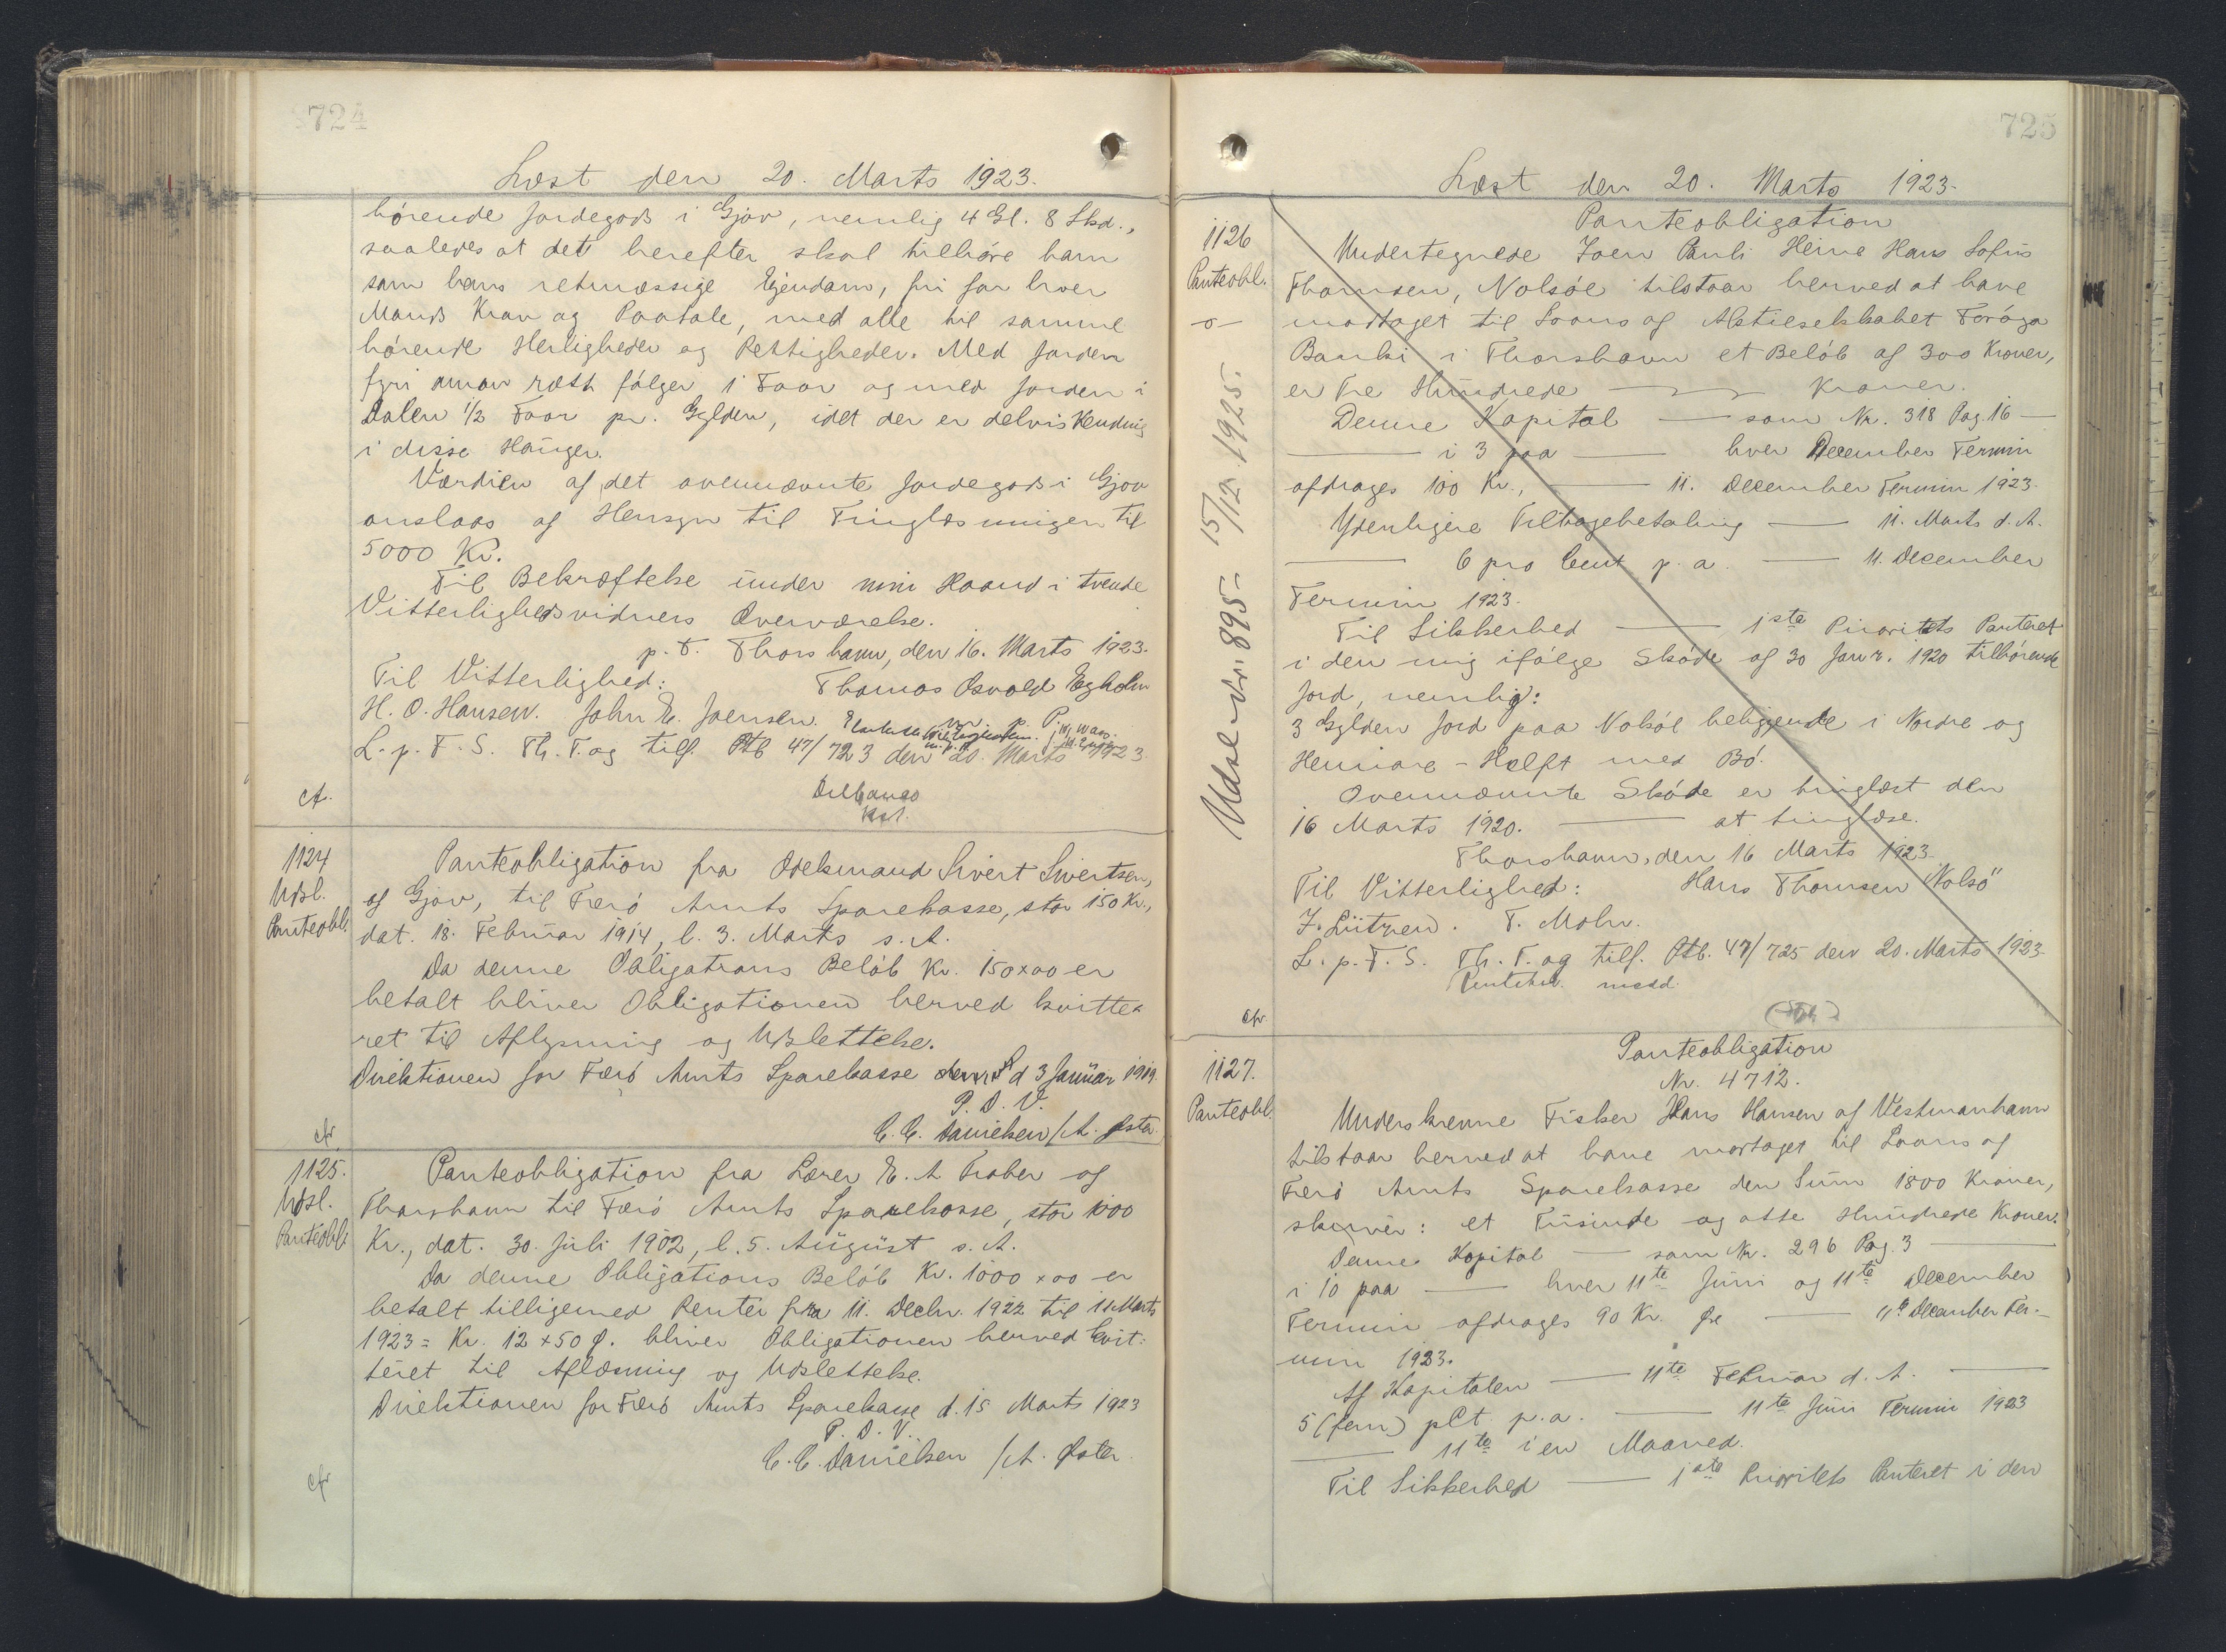 724
Læst den 20. Marts 1923.
hörende Jordegods i Gjov, nemlig 4 Gl. 8 Skd.,
saaledes at det herefter skal tilhöre ham
som hans retmæssige Ejendom, fri for hver
Mands Krav og Paatale, med alle til samme
hörende Herligheder og Rettigheder. Med Jorden
fyri annan ræth fölger 1 Faar og med Jorden i
Dalen 1/2 Faar pr. Gylden, idet der er delvis Kendning
i disse Hauger.
Værdien af det ovennævnte Jordegods i Gjov
anslaas af Hensyn til Tinglæsningen til
5000 Kr.
Til Bekræftelse under min Haand i tvende
Vitterlighedsvidners Overværelse.
p. t. Thorshavn, den 16. Marts 1923.
Til Vitterlighed: Thomas Osvald Egholm
H. O. Hansen. John E. Joensen.
L. p. F. S. Th. T. og tilf. Ptb 47/723 den 20. Marts 1923
cfr.
1124
Udsl.
Panteobl.
Panteobligation fra Odelsmand Sivert Sivertsen,
af Gjov, til Færö Amts Sparekasse, stor 150 Kr.,
dat. 18. Februar 1914, l. 3. Marts s. A.
Da denne Obligations Belöb Kr. 150×00 er
betalt bliver Obligationen herved kvitte-
ret til Aflysning og Udslettelse.
Direktionen for Færö Amts Sparekasse d 3 Januar 1919.
P. D. V.
C. C. Danielsen /A. Øster.
cfr
1125.
Udsl.
Panteobl
Panteobligation fra Lærer E. A Fraber og
Thorshavn til Færö Amts Sparekasse, stor 1000
Kr., dat. 30. Juli 1902, l. 5. August s. A.
Da denne Obligations Belöb Kr. 1000×00 er
betalt tilligemed Renter fra 11. Decbr. 1922 til 11 Marts
1923 = Kr. 12×50 Ø. bliver Obligationen herved kvit-
teret til Aflæsning og Udslettelse.
Direktionen for Færö Amts Sparekasse d. 15 Marts 1923
P. D. V.
C. C. Danielsen /A. Øster.
cfr
725
Læst den 20. Marts 1923.
1126
Panteobl.
-o-
Udsl. Nr. 895 - 15/12 1925.
Panteobligation
Undertegnede Joen Pauli Heine Hans Sofus
Thomsen, Nolsöe tilstaar herved at have
modtaget til Laans af Aktieselskabet Föröya
Banki i Thorshavn et Belöb af 300 Kroner,
er Tre Hundrede Kroner.
Denne Kapital — som Nr. 318 Pag. 16 —
— i 3 paa — hver December Termin
afdrages 100 Kr., — 11. December Termin 1923.
Ydenligere Tilbagebetaling — 11. Marts d. A.
— 6 pro Cent p. a. — 11. December
Termin 1923.
Til Sikkerhed — 1ste Prioritets Panteret
i den mig ifölge Sköde af 30 Janr. 1920 tilhörende
Jord, nemlig:
3 Gylden Jord paa Nolsöe beliggende i Nordre og
Heimare-Helft med Bö.
Ovennævnte Sköde er tinglæst den
16 Marts 1920. — at tinglæse.
Thorshavn, den 16 Marts 1923.
Til Vitterlighed: Hans Thomsen "Nolsö"
J. Lützen. T. Mohr.
L. p. F. S. Th. T. og tilf. Ptb. 47/725 den 20. Marts 1923
cfr.
1127.
Panteobl.
Panteobligation
Nr. 4712.
Underskrevne Fisker Hans Hansen af Vestmanhavn
tilstaar herved at have modtaget til Laans af
Færö Amts Sparekasse den Sum 1800 Kroner,
skriver: et Tusinde og otte Hundrede Kroner.
Denne Kapital — som Nr. 296 Pag. 3 —
i 10 paa — hver 11te Juni og 11te December
Termin afdrages 90 Kr. — 11te December Ter-
min 1923.
Af Kapitalen — 11te Februar d. A. —
5 (fem) pCt p. a. — 11te Juni Termin 1923
— 11te i en Maaned.
Til Sikkerhed — 1ste Prioritets Panteret i den